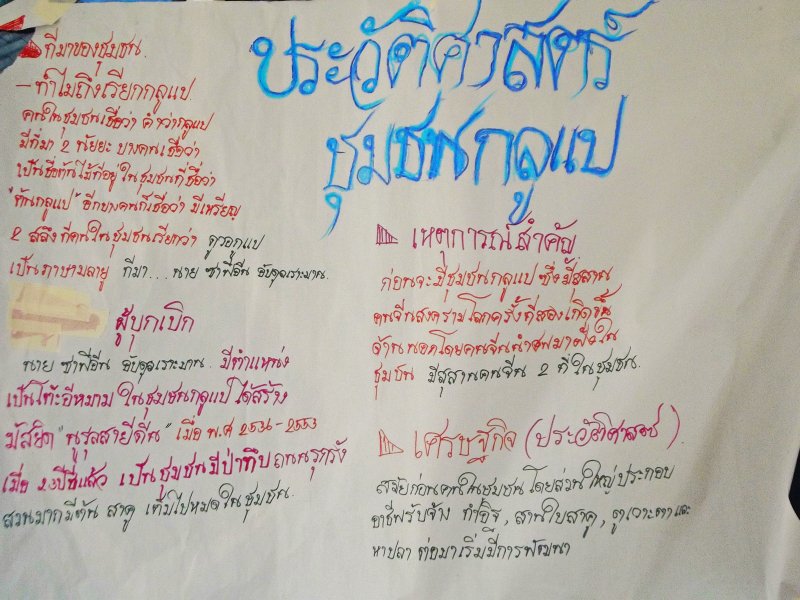 ประวัติศาสตร์
ชุมชนกลูแป
ที่มาของชุมชน.
- ทำไมถึงเรียกกลูแป
คนในชุมชนเชื่อว่า คำว่ากลูแป
มีที่มา 2 นัยยะ บางคนเชื่อว่า
เป็นชื่อต้นไม้ที่อยู่ในชุมชนที่ชื่อว่า
"ต้นกลูแป" อีกบางคนก็เชื่อว่า มีเหรียญ
2 สลึงที่คนในชุมชนเรียกว่า ดูวอกูแป
เป็นภาษามลายู ที่มา... นาย ซาฟีอีน อับดุลเราะมาน.
ผู้บุกเบิก
นาย ซาฟีอีน อับดุลเราะมาน. มีตำแหน่ง
เป็นโต๊ะอีหมาม ในชุมชนกลูแป ได้สร้าง
มัสยิด "นูรุลสายีดีน" เมื่อ พ.ศ 2536 - 2553
เมื่อ 23 ปีที่แล้ว เป็นชุมชนมีป่าทึบ ถนนรุกรัง
ส่วนมากมีต้น สาคู เต็มไปหมดในชุมชน.
เหตุการณ์สำคัญ
ก่อนจะมีชุมชนกลูแป ซึ่งมีสุสาน
คนจีนสงครามโลกครั้งที่สองเกิดขึ้น
ด้านนอกโดยคนจีนนำศพมาฝังใน
ชุมชน มีสุสานคนจีน 2 ที่ในชุมชน.
เศรษฐกิจ (ประวัติศาสตร์).
สมัยก่อนคนในชุมชน โดยส่วนใหญ่ประกอบ
อาชีพรับจ้าง ทำอิฐ, สานใบสาคู, และ
หาปลา ต่อมาเริ่มมีการพัฒนา